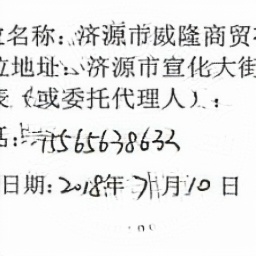 位名称：济源市威隆商贸
位地址：济源市宣化大街
表（或委托代理人）：
话：15565638632
日期：2018年 7月10日